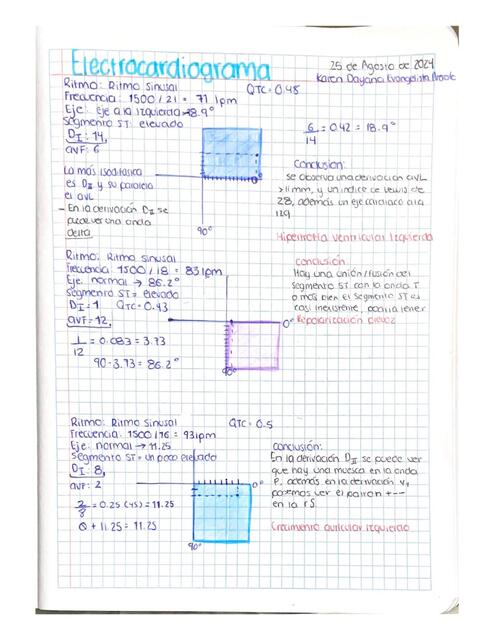 Electrocardiograma
25 de Agosto de 2024
Karen Dayana Evangelista
Ritmo: Ritmo Sinusal
QTc = 0.48
Frecuencia: 1500 / 21 = 71 lpm
Eje: eje a la izquierda → 18.9°
Segmento ST: elevado
DI: 14,
aVF: 6
6/14 = 0.42 = 18.9°
La más isodifásica
es DII y su paralela
el aVL
- En la derivación DII se
puede ver una onda
delta
90°
Conclusión:
se observa una derivación aVL
> 11 mm, y un índice de Lewis de
28, además un eje cardiaco a la
izq
Hipertrofia Ventricular Izquierda
Ritmo: Ritmo Sinusal
Frecuencia: 1500 / 18 = 83 lpm
Eje: normal → 86.2°
Segmento ST = elevado
DI = 1 QTc = 0.43
aVF = 12,
1/12 = 0.083 = 3.73
90 - 3.73 = 86.2°
0°
90°
Conclusión:
Hay una unión/fusión del
segmento ST con la onda T
o más bien el segmento ST es
casi inexistente, podría tener
Repolarización precoz
Ritmo: Ritmo Sinusal
QTc = 0.5
Frecuencia: 1500 / 16 = 93 lpm
Eje: normal → 11.25
Segmento ST = un poco elevado
DI: 8,
aVF: 2
2/8 = 0.25 (45) = 11.25
0 + 11.25 = 11.25
0°
90°
Conclusión:
En la derivación DII se puede ver
que hay una muesca en la onda
P, además en la derivación V1
podemos ver el patrón + - -
en la rS
Crecimiento auricular izquierdo